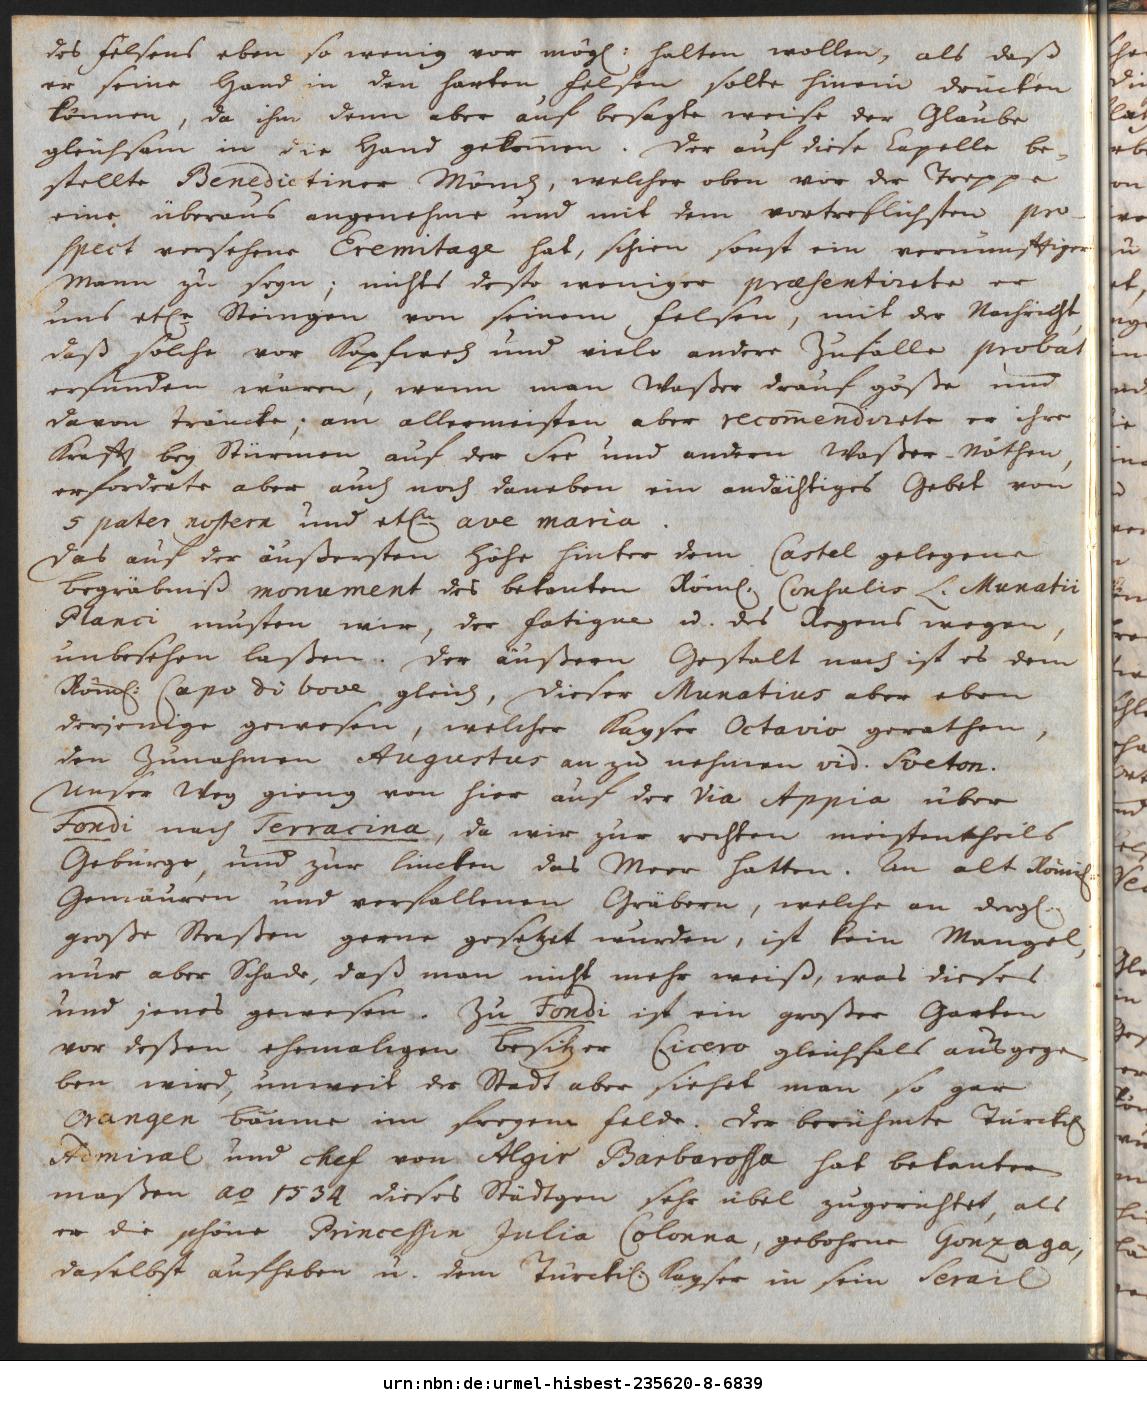 des Felsens eben so wenig vor mögl: halten wollen, als daß
er seine Hand in den harten Felsen solte hinein drücken
können, da ihm denn aber auf besagte weise der Glaube
gleichsam in die Hand gekom̄en. Der auf diese Capelle be-
stellte Benedictiner Mönch, welcher oben vor der Treppe
eine überaus angenehme und mit dem vortreflichsten pro-
spect versehene Eremitage hat, schien sonst ein vernünfftiger
Mann zu seyn; nichts desto weniger præsentirete er
uns etl. Steingen von seinem Felsen, mit der Nachricht,
daß solche vor Kopfweh und viele andere Zufälle probat
erfunden wären, wenn man Waßer drauf göße und
davon träncke; am allermeisten aber recom̄endirete er ihre
Krafft bey Stürmen auf der See und andern Waßer-Nöthen,
erforderte aber auch noch daneben ein andächtiges Gebet von
5 pater nostern und etl. ave maria.
Das auf der äußersten Höhe hinter dem Castel gelegene
Begräbniß monument des bekanten Röml. Consulis L. Munatii
Planci musten wir, der fatigue u. des Regens wegen,
unbesehen laßen. Der äußern Gestalt nach ist es dem
Röml: Capo di bove gleich, dieser Munatius aber eben
derjenige gewesen, welcher Kayser Octavio gerathen,
den Zunahmen Augustus an zu nehmen vid. Sveton.
Unser Weg gieng von hier auf der Via Appia über
Fondi nach Terracina, da wir zur rechten meistentheils
Gebürge, und zur lincken das Meer hatten. An alt Römis:
Gemäuren und verfallenen Gräbern, welche an dergl.
große Straßen gerne gesetzet wurden, ist kein Mangel,
nur aber Schade, daß man nicht mehr weiß, was dieses
und jenes gewesen. Zu Fondi ist ein großer Garten
vor deßen ehemaligen Besitzer Cicero gleichfals ausgege-
ben wird, unweit der Stadt aber siehet man so gar
Orangen Bäume im freyem Felde. Der berühmte Türckis
Admiral und chef von Algir Barbarossa hat bekanter
maßen ao 1534 dieses Städtgen sehr übel zugerichtet, als
er die schöne Princessin Julia Colonna, gebohrne Gonzaga,
daselbst aufheben u. dem Türckis. Kayser in sein Serail
urn:nbn:de:urmel-hisbest-235620-8-6839